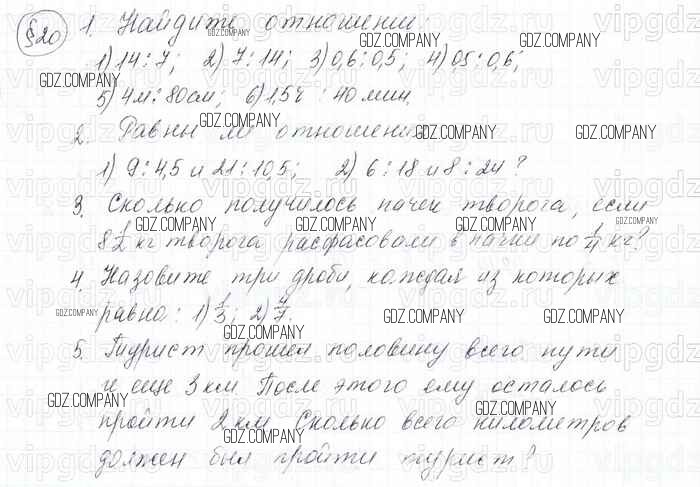 §20 1. Найдите отношении:
1) 14:7; 2) 7:14; 3) 0,6:0,5; 4) 0,5:0,6;
5) 4м:80см; 6) 1,5ч : 40мин.
2. Равны ли отношения:
1) 9:4,5 и 21:10,5; 2) 6:18 и 8:24?
3. Сколько получилось пачек творога, если
8 1/2 кг творога расфасовали в пачки по 1/4 кг?
4. Назовите три дроби, каждая из которых
равна: 1) 1/3; 2) 4/7.
5. Турист прошел половину всего пути
и еще 3 км. После этого ему осталось
пройти 2 км. Сколько всего километров
должен был пройти турист?
GDZ.COMPANY
vipgdz.ru